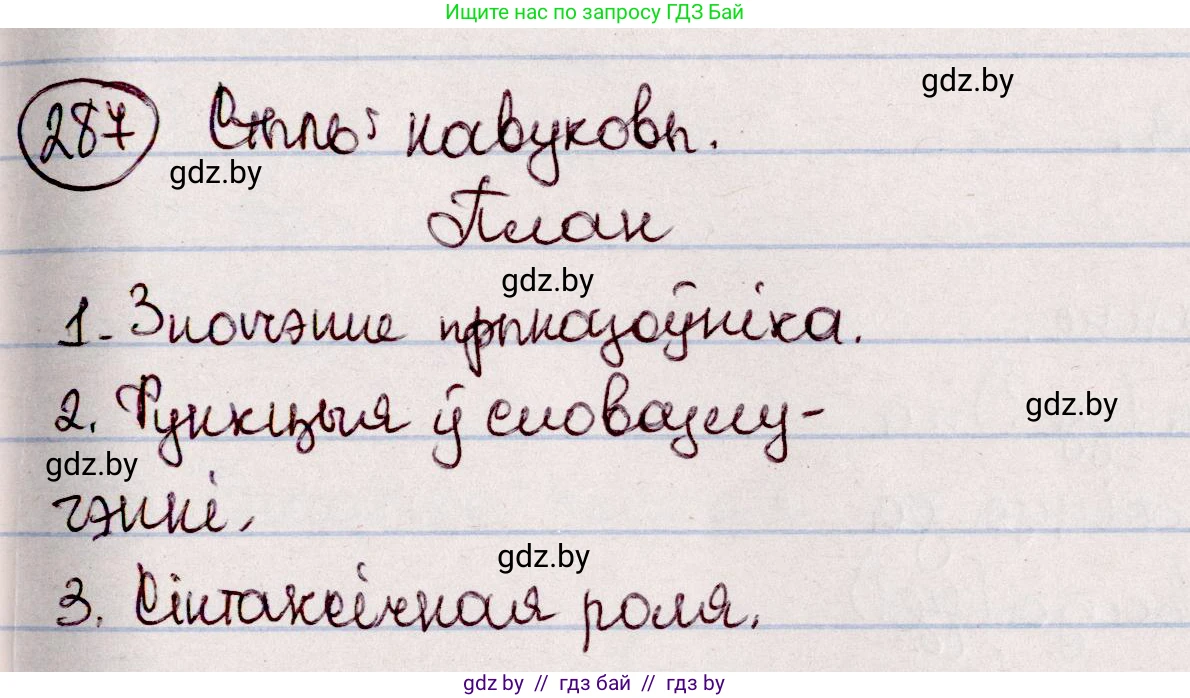 Ищите нас по запросу ГДЗ Бай
gdz.by
287 Стыль: навуковы.
gdz.by
План
gdz.by
1. Значэнне прыназоўніка.
2. Функцыя ў словазлу-
gdz.by
gdz.by
чэнні.
gdz.by
3. Сінтаксічная роля.
gdz.by // гдз бай // гдз by